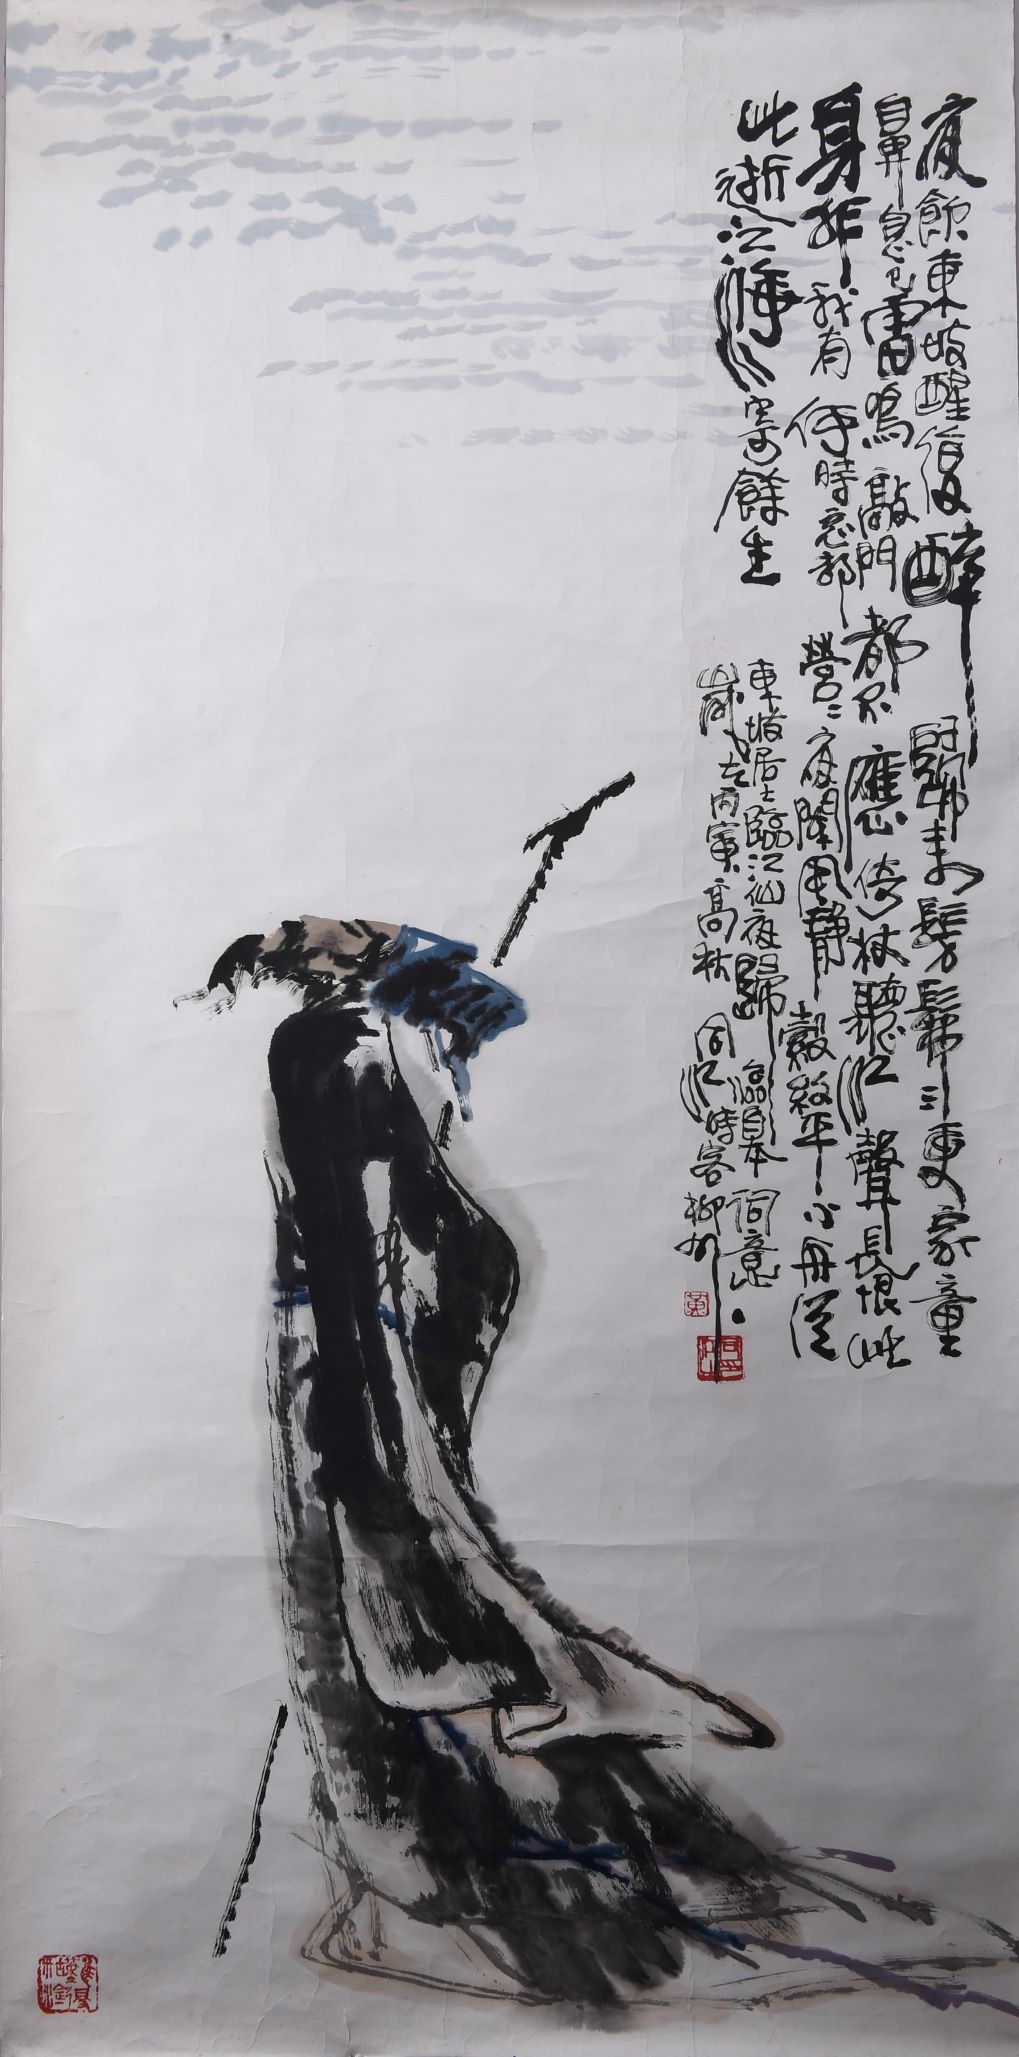 夜飲東坡醒復醉歸來髣髴三更家童
鼻息已雷鳴敲門都不應倚杖聽江聲長恨此
身非我有何時忘却營營夜闌風靜縠紋平小舟從
此逝江海寄餘生
東坡居士臨江仙夜歸臨皋本詞意
歲在丙寅高秋